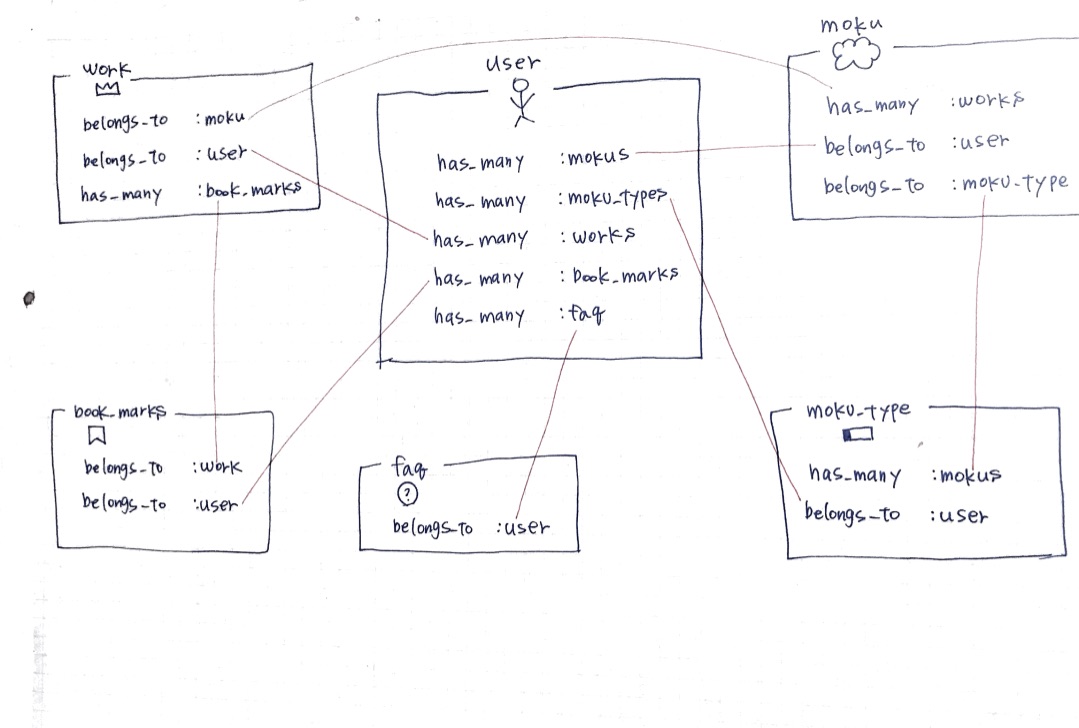 work
belongs_to :moku
belongs_to :user
has_many :book_marks
user
has_many :mokus
has_many :moku_types
has_many :works
has_many :book_marks
has_many :faq
moku
has_many :works
belongs_to :user
belongs_to :moku_type
book_marks
belongs_to :work
belongs_to :user
faq
?
belongs_to :user
moku_type
has_many :mokus
belongs_to :user